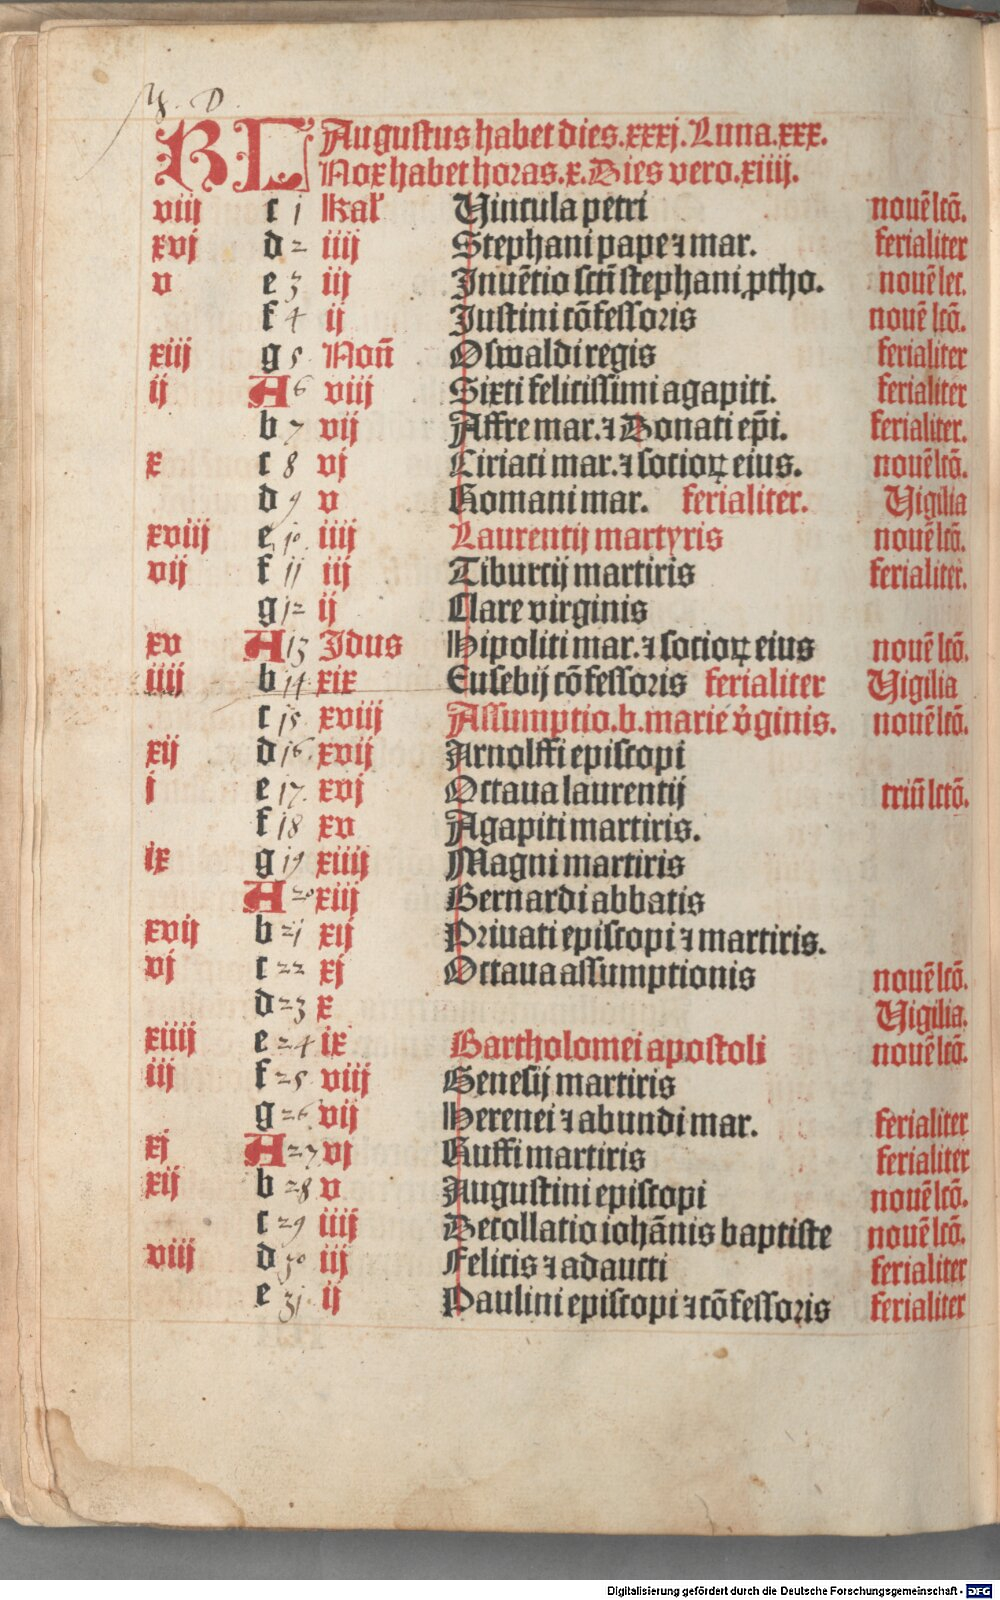 D.
KL Augustus habet dies.xxxj.Luna.xxx.
Nox habet horas.x.Dies vero.xiiij.
viij c 1 kal' Vincula petri nouē lcō.
xvj d 2 iiij Stephani pape ⁊ mar. ferialiter
v e 3 iij Inuētio sctī stephani ,ptho. nouē lec.
f 4 ij Justini cōfessoris nouē lcō.
xiij g 5 Noñ Oswaldi regis ferialiter
ij A 6 viij Sixti felicissimi agapiti. ferialiter
b 7 vij Affre mar.⁊ Donati ep̄i. ferialiter.
x c 8 vj Ciriaci mar.⁊ socioꝝ eius. nouē lcō.
d 9 v Romani mar. ferialiter. Vigilia
xviij e 10 iiij Laurentij martyris nouē lcō.
vij f 11 iij Tiburcij martiris ferialiter.
g 12 ij Clare virginis
xv A 13 Idus Hipoliti mar.⁊ socioꝝ eius nouē lcō.
iiij b 14 xix Eusebij cōfessoris ferialiter Vigilia
c 15 xviij Assumptio.b.marie v̓ginis. nouē lcō.
xij d 16 xvij Arnolffi episcopi
j e 17 xvj Octaua laurentij triū lctō.
f 18 xv Agapiti martiris.
ix g 19 xiiij Magni martiris
A 20 xiij Bernardi abbatis
xvij b 21 xij Priuati episcopi ⁊ martiris.
vj c 22 xj Octaua assumptionis nouē lcō.
d 23 x Vigilia.
xiiij e 24 ix Bartholomei apostoli nouē lcō.
iij f 25 viij Genesij martiris
g 26 vij Herenei ⁊ abundi mar. ferialiter
xj A 27 vj Ruffi martiris ferialiter
xij b 28 v Augustini episcopi nouē lcō.
c 29 iiij Decollatio iohānis baptiste nouē lcō.
viij d 30 iij Felicis ⁊ adaucti ferialiter
e 31 ij Paulini episcopi ⁊ cōfessoris ferialiter
Digitalisierung gefördert durch die Deutsche Forschungsgemeinschaft - DFG